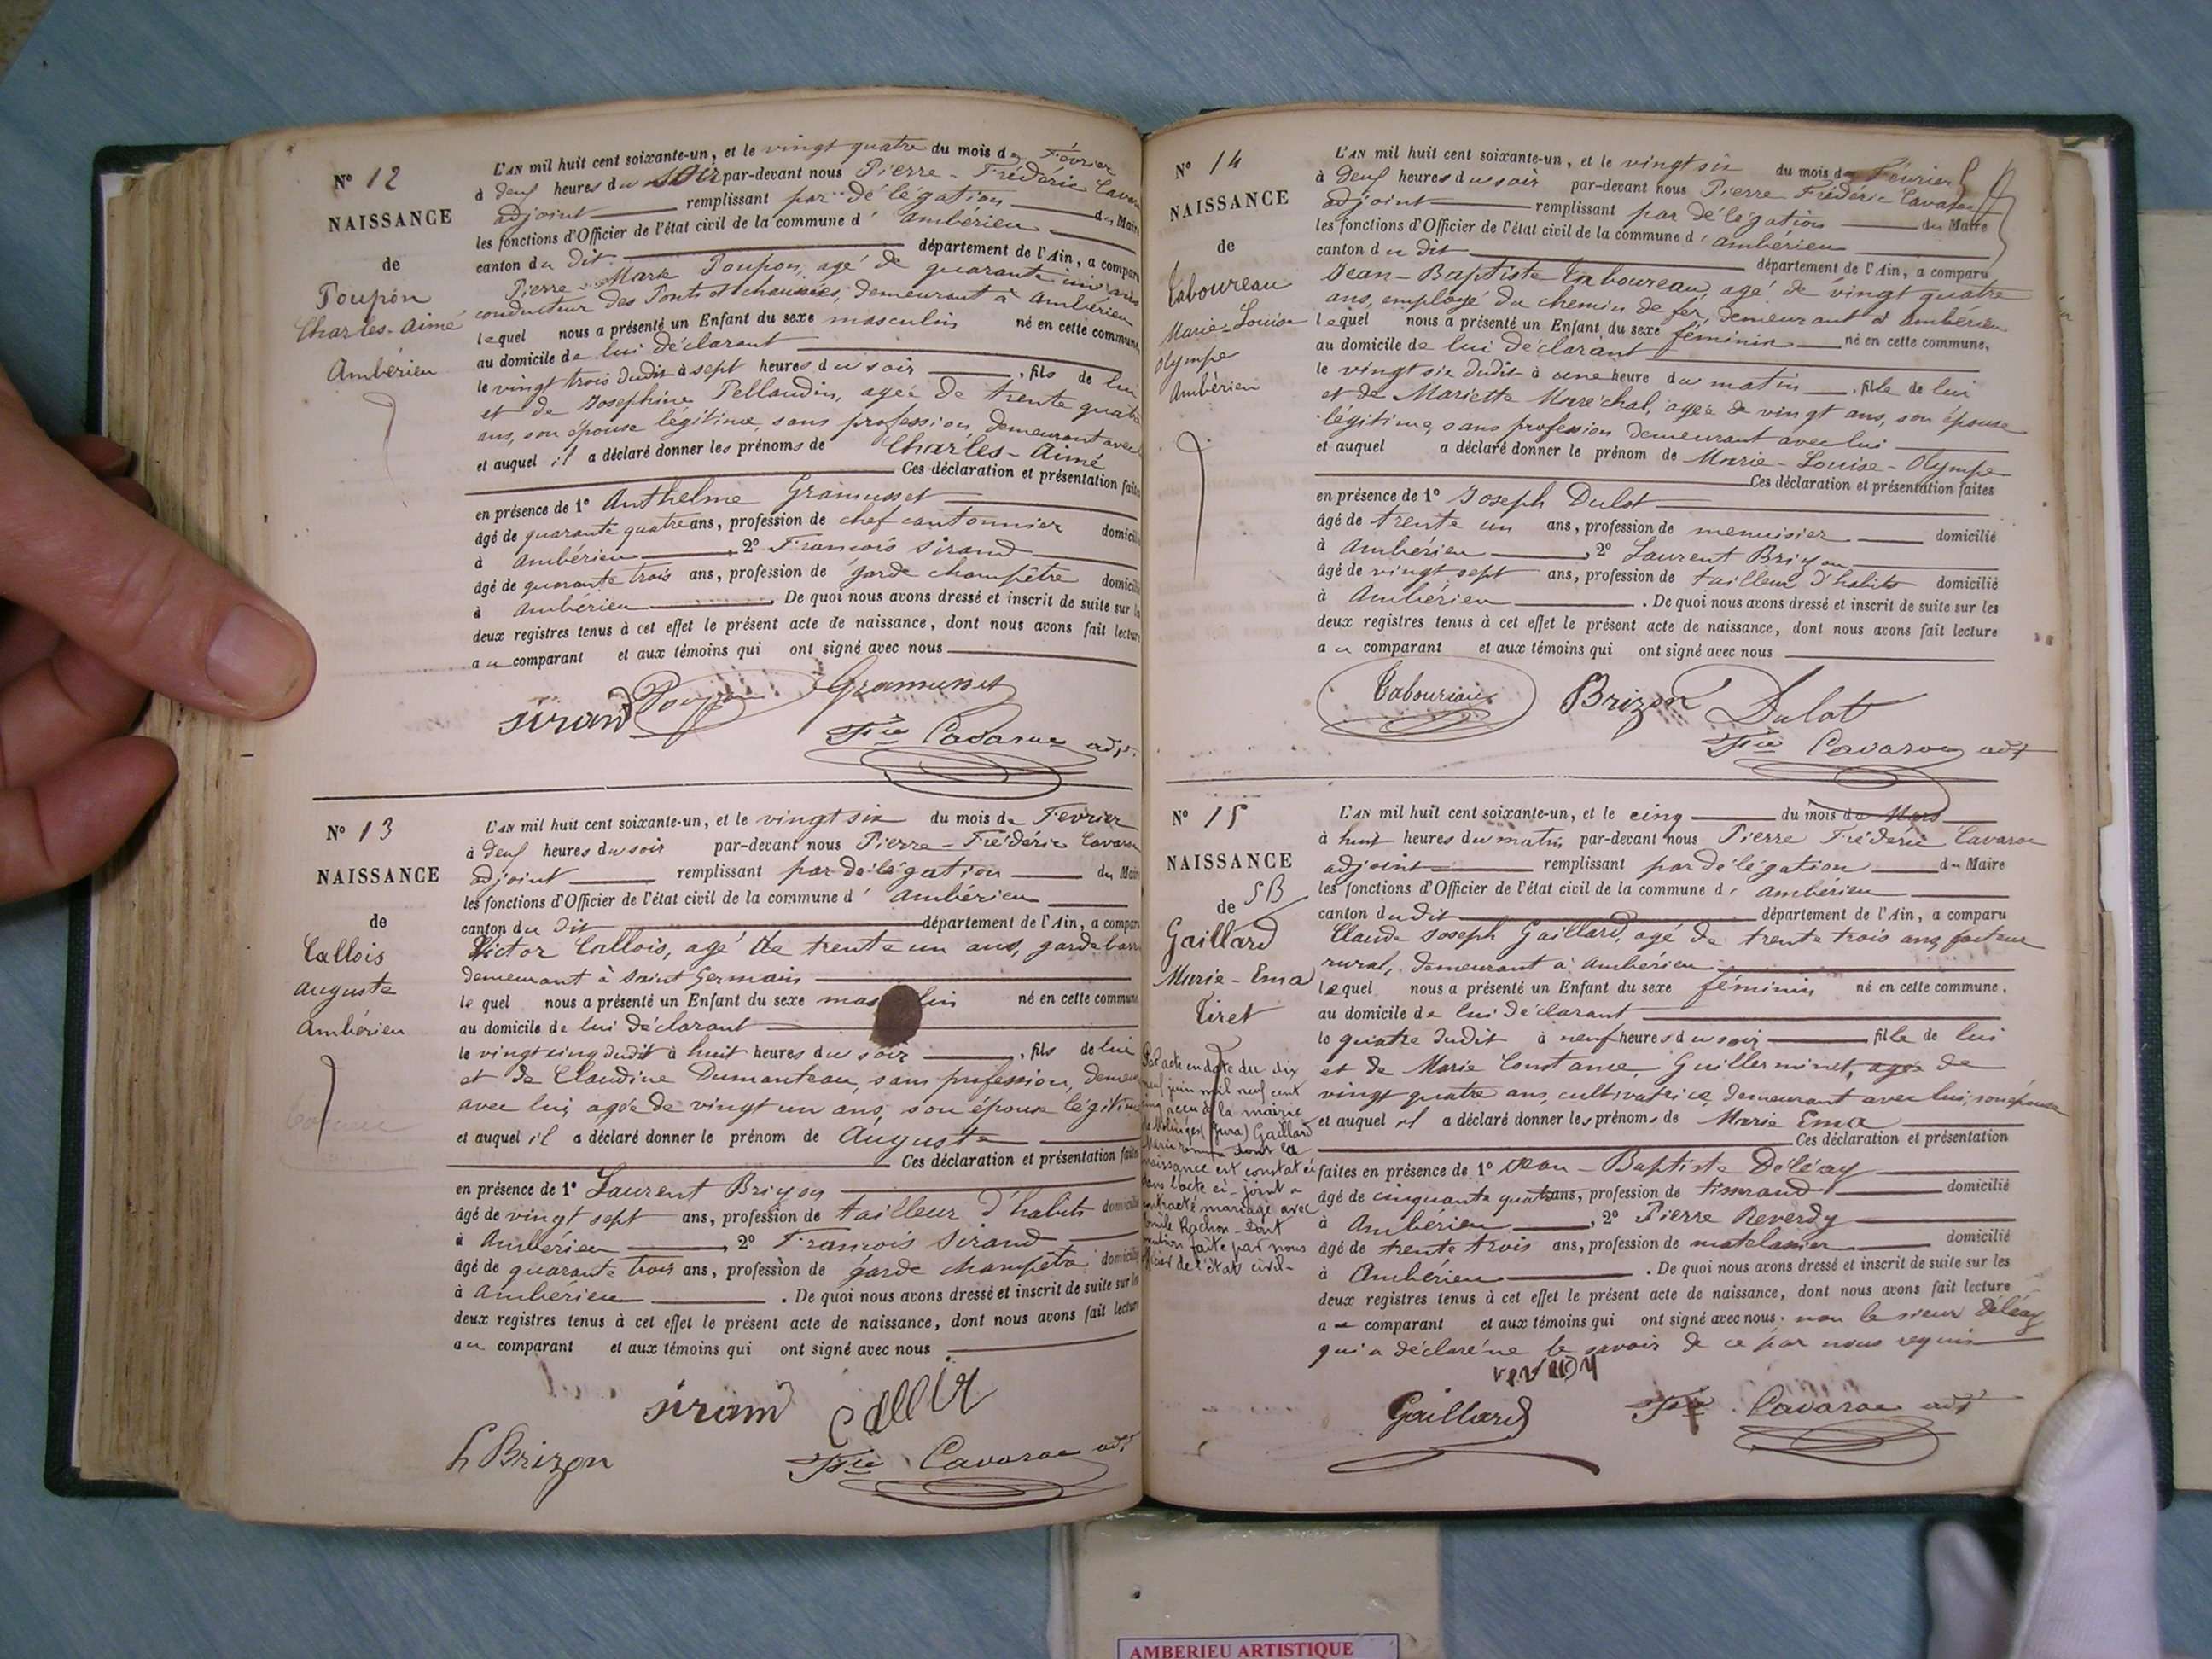 N° 12
NAISSANCE
de
Poupon
Charles-Aimé
Ambérieu
L'AN mil huit cent soixante-un, et le vingt quatre du mois de Février
à deux heures du soir par-devant nous Pierre-Frédéric
adjoint remplissant par délégation du Maire
les fonctions d'Officier de l'état civil de la commune d' Ambérieu
canton du dit département de l'Ain, a compar
Pierre-Mark Poupon, agé de quarante
conducteur des Ponts et chaussées, demeurant à Ambérieu
lequel nous a présenté un Enfant du sexe masculin né en cette commune,
au domicile de lui déclarant
le vingt trois dudit à sept heures du soir , fils de lui
et de Josephine Pellaudin, agée de trente quatre
ans, son épouse légitime, sans profession, demeurant avec
et auquel il a déclaré donner les prénoms de Charles-Aimé
Ces déclaration et présentation faites
en présence de 1° Anthelme Gramusset
âgé de quarante quatre ans, profession de chef cantonnier domicilié
à Ambérieu , 2° François Sirand
âgé de quarante trois ans, profession de garde champêtre domicilié
à Ambérieu . De quoi nous avons dressé et inscrit de suite sur les
deux registres tenus à cet effet le présent acte de naissance, dont nous avons fait lecture
au comparant et aux témoins qui ont signé avec nous
Sirand Poupon Gramusset
Fic Cavaroc adjt
N° 13
NAISSANCE
de
Callois
Auguste
Ambérieu
L'AN mil huit cent soixante-un, et le vingt six du mois de Février
à deux heures du soir par-devant nous Pierre-Frédéric Cavaroc
adjoint remplissant par délégation du Maire
les fonctions d'Officier de l'état civil de la commune d' Ambérieu
canton du dit département de l'Ain, a compar
Victor Callois, agé de trente un ans, garde barr
demeurant à Saint Germain
lequel nous a présenté un Enfant du sexe masculin né en cette commune
au domicile de lui déclarant
le vingt cinq dudit à huit heures du soir , fils de lui
et de Claudine Dumanteau, sans profession, demeu
avec lui, agée de vingt un ans, son épouse légitime
et auquel il a déclaré donner le prénom de Auguste
Ces déclaration et présentation faites
en présence de 1° Laurent Brizon
âgé de vingt sept ans, profession de tailleur d'habits domicilié
à Ambérieu , 2° François Sirand
âgé de quarante trois ans, profession de garde champêtre domicilié
à Ambérieu . De quoi nous avons dressé et inscrit de suite sur les
deux registres tenus à cet effet le présent acte de naissance, dont nous avons fait lecture
au comparant et aux témoins qui ont signé avec nous
Sirand
L Brizon Fic Cavaroc adjt
N° 14
NAISSANCE
de
Taboureau
Marie-Louise
Olympe
Ambérieu
L'AN mil huit cent soixante-un, et le vingt six du mois de Février
à deux heures du soir par-devant nous Pierre Frédéric Cavaroc
adjoint remplissant par délégation du Maire
les fonctions d'Officier de l'état civil de la commune d' Ambérieu
canton du dit département de l'Ain, a comparu
Jean-Baptiste Taboureau, agé de vingt quatre
ans, employé du chemin de fer, demeurant à Ambérieu
lequel nous a présenté un Enfant du sexe féminin né en cette commune,
au domicile de lui déclarant
le vingt six dudit à une heure du matin , fille de lui
et de Mariette Maréchal, agée de vingt ans, son épouse
légitime, sans profession demeurant avec lui
et auquel a déclaré donner le prénom de Marie-Louise-Olympe
Ces déclaration et présentation faites
en présence de 1° Joseph Dulot
âgé de trente un ans, profession de menuisier domicilié
à Ambérieu , 2° Laurent Brizon
âgé de vingt sept ans, profession de tailleur d'habits domicilié
à Ambérieu . De quoi nous avons dressé et inscrit de suite sur les
deux registres tenus à cet effet le présent acte de naissance, dont nous avons fait lecture
au comparant et aux témoins qui ont signé avec nous
Taboureau Brizon Dulot
Fic Cavaroc adjt
N° 15
NAISSANCE
de SB
Gaillard
Marie-Ema
Tiret
Par acte en date du dix
neuf juin mil neuf cent
cinq reçu à la mairie
de Molinges (Jura) Gaillard
Marie Emma dont la
naissance est constatée
dans l'acte ci-joint a
contracté mariage avec
Emile Rochon - Dont
mention faite par nous
officier de l'état civil-
L'AN mil huit cent soixante-un, et le cinq du mois de Mars
à huit heures du matin par-devant nous Pierre Frédéric Cavaroc
adjoint remplissant par délégation du Maire
les fonctions d'Officier de l'état civil de la commune d' Ambérieu
canton du dit département de l'Ain, a comparu
Claude Joseph Gaillard, agé de trente trois ans, facteur
rural, demeurant à Ambérieu
lequel nous a présenté un Enfant du sexe féminin né en cette commune,
au domicile de lui déclarant
le quatre dudit à neuf heures du soir fille de lui
et de Marie Constance Guillerminet, agée de
vingt quatre ans, cultivatrice, demeurant avec lui, son épouse
et auquel il a déclaré donner les prénoms de Marie Ema
Ces déclaration et présentation
faites en présence de 1° Jean-Baptiste Déléaz
âgé de cinquante quatre ans, profession de tisserand domicilié
à Ambérieu , 2° Pierre Reverdy
âgé de trente trois ans, profession de matelassier domicilié
à Ambérieu . De quoi nous avons dressé et inscrit de suite sur les
deux registres tenus à cet effet le présent acte de naissance, dont nous avons fait lecture
au comparant et aux témoins qui ont signé avec nous, non le sieur Déléaz
qui a déclaré ne le savoir de ce par nous requis
Gaillard Fic Cavaroc adjt
AMBERIEU ARTISTIQUE